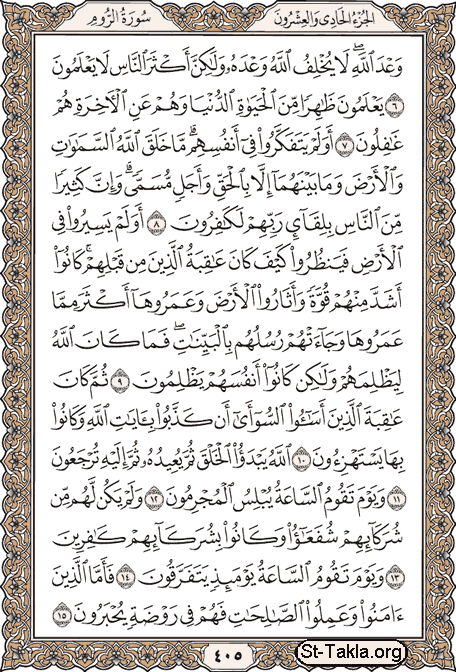 الجزء الحادي والعشرون سورة الروم
وَعْدَ ٱللَّهِۖ لَا يُخْلِفُ ٱللَّهُ وَعْدَهُۥ وَلَٰكِنَّ أَكْثَرَ ٱلنَّاسِ لَا يَعْلَمُونَ
٦ يَعْلَمُونَ ظَٰهِرًا مِّنَ ٱلْحَيَوٰةِ ٱلدُّنْيَا وَهُمْ عَنِ ٱلْءَاخِرَةِ هُمْ
غَٰفِلُونَ ٧ أَوَلَمْ يَتَفَكَّرُوا۟ فِىٓ أَنفُسِهِمۗ مَّا خَلَقَ ٱللَّهُ ٱلسَّمَٰوَٰتِ
وَٱلْأَرْضَ وَمَا بَيْنَهُمَآ إِلَّا بِٱلْحَقِّ وَأَجَلٍ مُّسَمًّىۗ وَإِنَّ كَثِيرًا
مِّنَ ٱلنَّاسِ بِلِقَآئِ رَبِّهِمْ لَكَٰفِرُونَ ٨ أَوَلَمْ يَسِيرُوا۟ فِى
ٱلْأَرْضِ فَيَنظُرُوا۟ كَيْفَ كَانَ عَٰقِبَةُ ٱلَّذِينَ مِن قَبْلِهِمْۚ كَانُوٓا۟
أَشَدَّ مِنْهُمْ قُوَّةً وَأَثَارُوا۟ ٱلْأَرْضَ وَعَمَرُوهَآ أَكْثَرَ مِمَّا
عَمَرُوهَا وَجَآءَتْهُمْ رُسُلُهُم بِٱلْبَيِّنَٰتِۖ فَمَا كَانَ ٱللَّهُ
لِيَظْلِمَهُمْ وَلَٰكِن كَانُوٓا۟ أَنفُسَهُمْ يَظْلِمُونَ ٩ ثُمَّ كَانَ
عَٰقِبَةَ ٱلَّذِينَ أَسَٰٓـُٔوا۟ ٱلسُّوٓأَىٰٓ أَن كَذَّبُوا۟ بِـَٔايَٰتِ ٱللَّهِ وَكَانُوا۟
بِهَا يَسْتَهْزِءُونَ ١٠ ٱللَّهُ يَبْدَؤُا۟ ٱلْخَلْقَ ثُمَّ يُعِيدُهُۥ ثُمَّ إِلَيْهِ تُرْجَعُونَ
١١ وَيَوْمَ تَقُومُ ٱلسَّاعَةُ يُبْلِسُ ٱلْمُجْرِمُونَ ١٢ وَلَمْ يَكُن لَّهُم مِّن
شُرَكَآئِهِمْ شُفَعَٰٓؤُا۟ وَكَانُوا۟ بِشُرَكَآئِهِمْ كَٰفِرِينَ
١٣ وَيَوْمَ تَقُومُ ٱلسَّاعَةُ يَوْمَئِذٍ يَتَفَرَّقُونَ ١٤ فَأَمَّا ٱلَّذِينَ
ءَامَنُوا۟ وَعَمِلُوا۟ ٱلصَّٰلِحَٰتِ فَهُمْ فِى رَوْضَةٍ يُحْبَرُونَ ١٥
٤٠٥
St-Takla.org